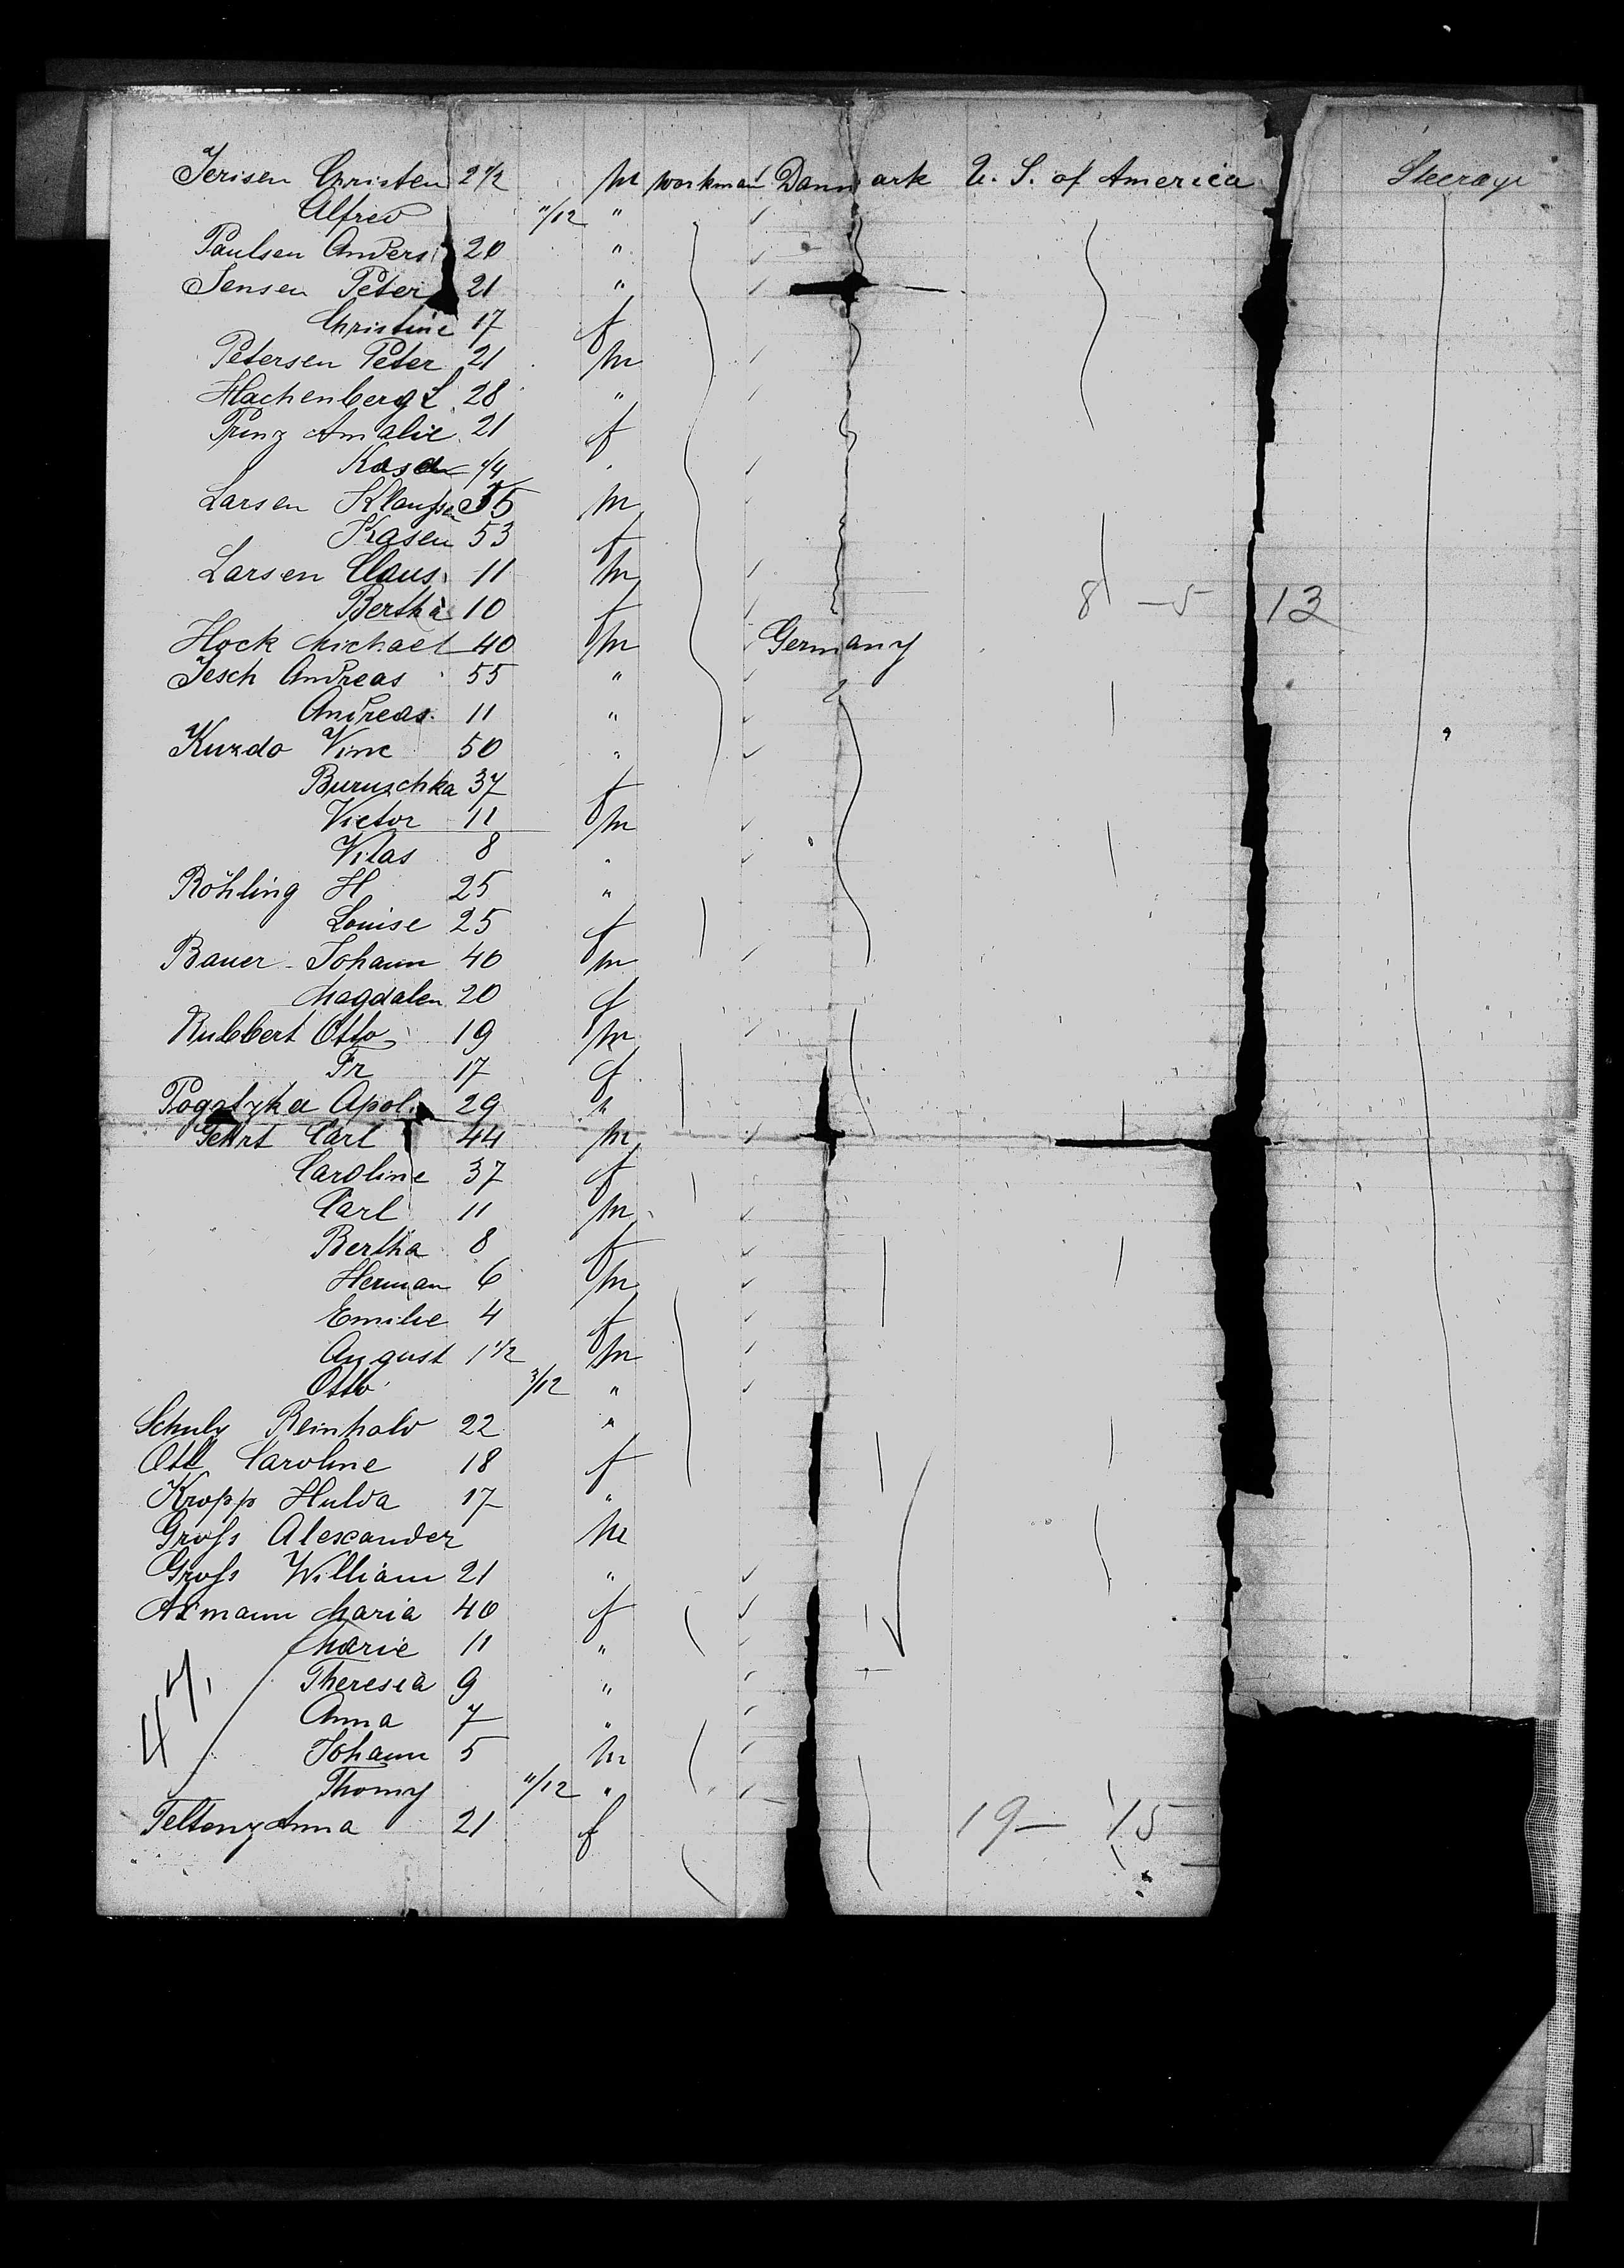 Jerisen Christen 2 1/2 m workman Dannmark U. S. of America Steerage
Alfred 11/12 "
Paulsen Anders 20 "
Jensen Peter 21 "
Christine 17 f
Petersen Peter 21 m
Hachenberg L 28 "
Prinz Amalie 21 f
Rosa 1/4
Larsen Klaussen m
Kasen 53 f
Larsen Claus 11 m
Bertha 10 f 8 - 5 13
Hock Michael 40 m Germany
Jesch Andreas 55 "
Andreas 11 "
Kuzdo Vinc 50 "
Buruschka 37 f
Victor 11 m
Vitas 8 "
Röhling H 25 "
Louise 25 f
Bauer Johann 40 m
Magdalen 20 f
Rubbert Otto 19 m
Fr 17 f
Apol. 29 "
Carl 44 m
Caroline 37 f
Carl 11 m
Bertha 8 f
Herman 6 m
Emilie 4 f
August 1 1/2 m
Otto 3/12 "
Schulz Reinhold 22 "
Ott Caroline 18 f
Kropp Hulda 17 "
Gross Alexander m
Gross William 21 "
Axmann Maria 40 f
Marie 11 "
47,
Theresia 9 "
Anna 7 "
Johann 5 m
Thomy 11/12 "
Anna 21 f 19 - 15